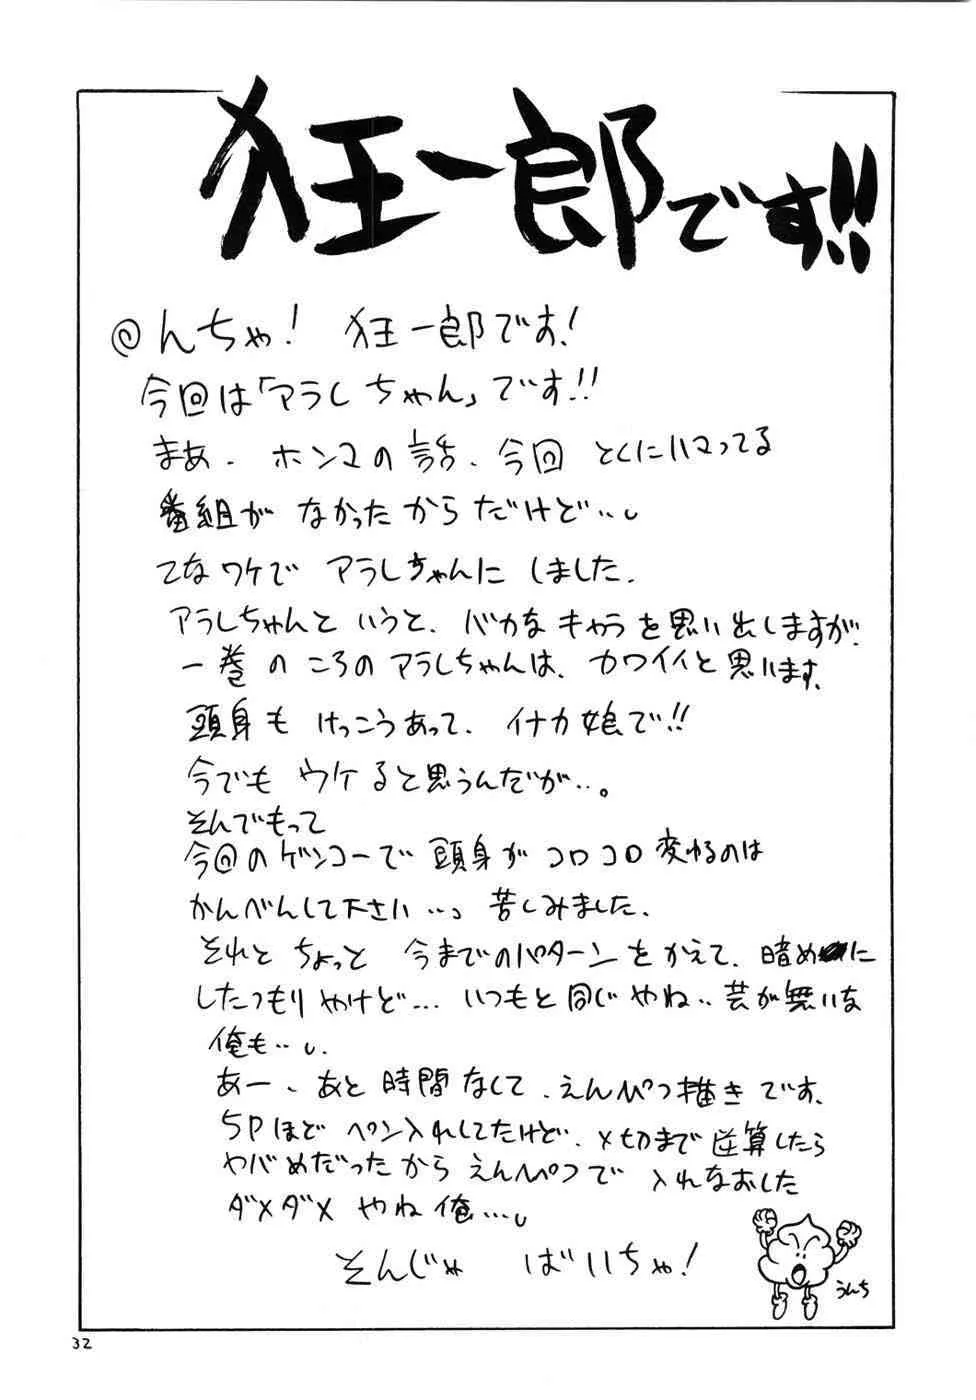 狂一郎です!!
@んちゃ! 狂一郎です!
今回は「アラレちゃん」です!!
まあ、ホンマの話、今回 とくにハマってる
番組が なかったからだけど…。
てなワケで アラレちゃんに しました。
アラレちゃんと いうと、バカな キャラを思い出しますが、
一巻のころのアラレちゃんは、カワイイと思います。
頭身も けっこうあって、イナカ娘で!!
今でも ウケると思うんだが…。
そんでもって
今回のゲンコーで 頭身が コロコロ 変わるのは
かんべんして下さい…。苦しみました。
それと ちょっと 今までのパターンを かえて、暗めに
したつもり やけど… いつもと同じやね… 芸が無いな
俺も…。
あー、あと 時間なくて、えんぴつ描きです。
5Pほど ペン入れしてたけど、〆切まで逆算したら
ヤバめだったから えんぴつで 入れなおした
ダメダメ やね 俺…。
そんじゃ ばいちゃ!
うんち
32